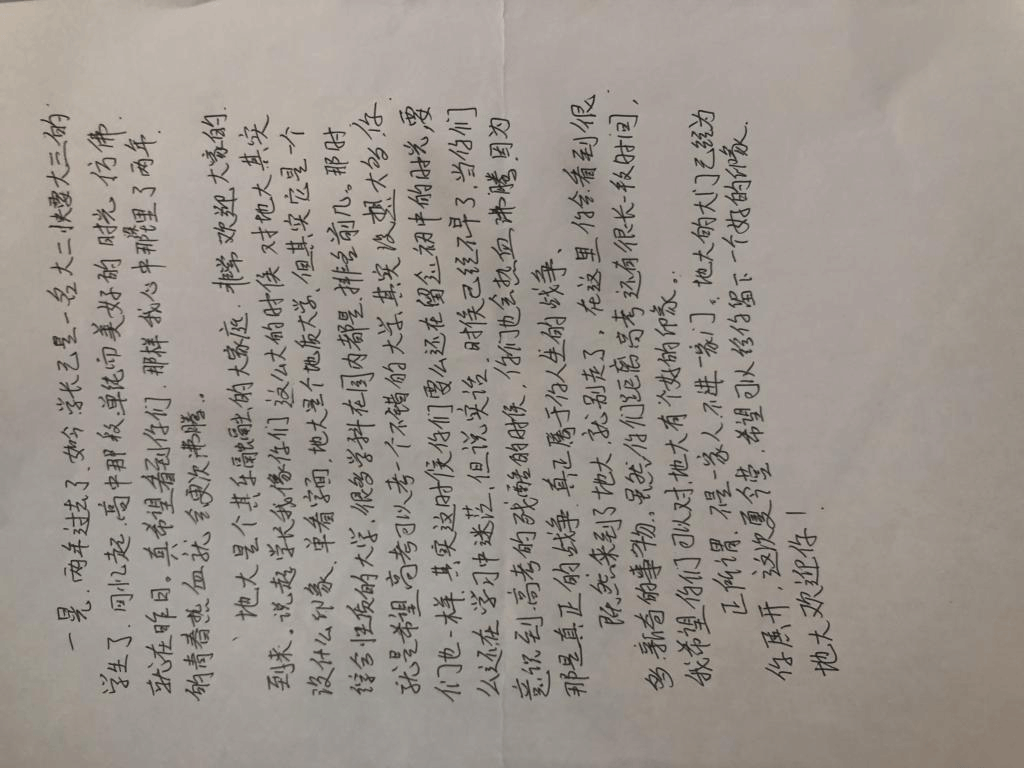 一晃,两年过去了,如今学长已是一名大二快要大三的
学生了,回忆起高中那段单纯而美好的时光,仿佛
就在昨日。真希望看到你们,那样我心中那埋了两年
的青春热血就会再次沸腾。
地大是个其乐融融的大家庭,非常欢迎大家的
到来。说起学长我像你们这么大的时候对地大其实
没什么印象,单看字间,地大是个地质大学,但其实它是一个
综合性质的大学,很多学科在国内都是排名前几。那时
就是希望高考可以考一个不错的大学,其实没想太多,你
们也一样,其实这时候你们要么还在留念初中的时光,要
么还在学习中迷茫,但说实话,时候已经不早了,当你们
意识到高考的残酷的时候,你们也会热血沸腾,因为
那是真正的战争,真正属于你人生的战争、
既然来到了地大,就别走了,在这里你会看到很
多新奇的事物。虽然你们距离高考还有很长一段时间,
我希望你们可以对地大有个好的印象。
正所谓,不是一家人不进一家门。地大的大门已经为
你展开,这次夏令营,希望可以给你留下一个好的印象
地大欢迎你!